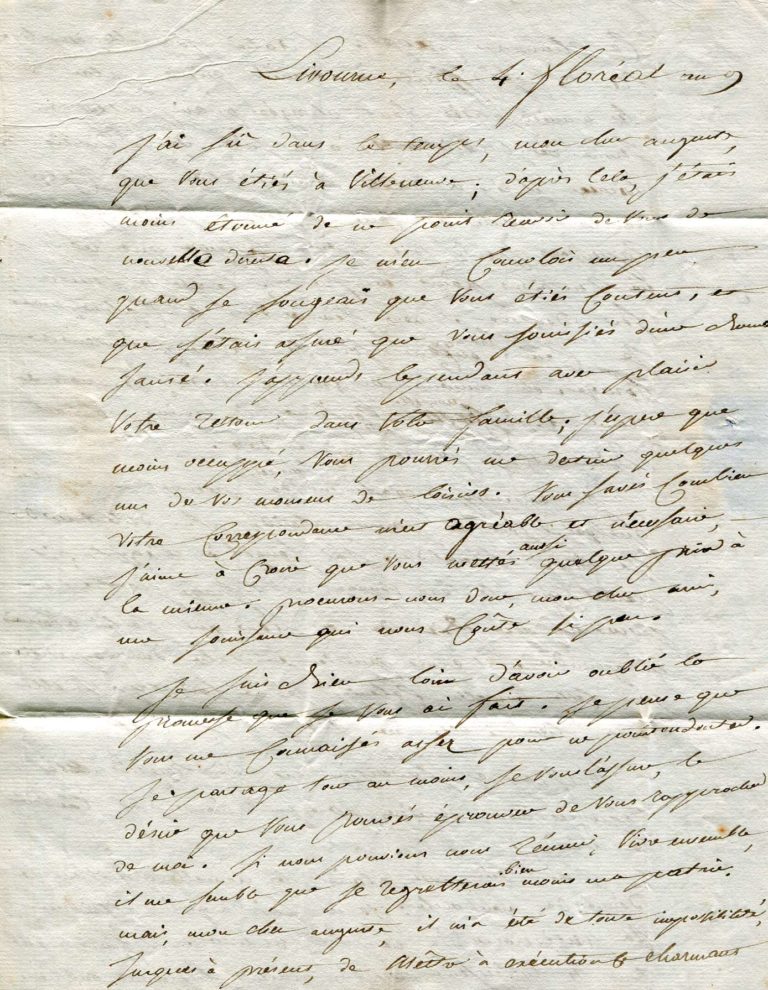 Livourne, le 4. floréal an 9
j'ai sû dans le temps, mon cher auguste,
que vous étiés à Villeneuve; d'après cela, j'étais
moins étonné de ne point recevoir de vous de
nouvelle directe. je m'en consolois un peu
quand je songeais que vous étiés content, et
que j'étais assuré que vous jouissiés d'une bonne
santé. j'apprends cependant avec plaisir
votre retour dans votre famille; j'espere que
moins occuppé, vous pourrés me donner quelques
uns de vos momens de loisirs. Vous savés combien
votre correspondance m'est agréable et nécessaire,
j'aime à croire que vous mettés aussi quelque prix à
la mienne. procurons-nous donc, mon cher ami,
une jouissance qui nous coûte si peu.
je suis bien loin d'avoir oublié la
promesse que je vous ai fait. je pense que
vous me connaissés assez pour ne point en douter.
je partage tout au moins, je vous l'assure, le
désir que vous pouvés éprouver de vous rapprocher
de moi. si nous pouvions nous réunir, vivre ensemble,
il me semble que je regretterais bien moins ma patrie.
mais, mon cher auguste, il m'a été de toute impossibilité,
jusques à présent, de mettre à exécution ce charmant